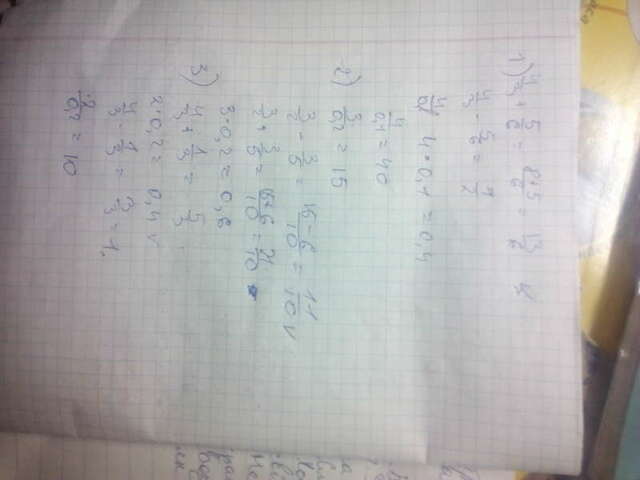 1) 4/3 + 5/6 = 8+5/6 = 13/6
4/3 - 5/6 = 1/2
4 · 0,1 = 0,4
4/0,1 = 40
2) 3/0,2 = 15
3/2 - 3/5 = 16-6/10 = 11/10 v
3/2 + 3/5 = 6+6/10 = 21/10
3·0,2 = 0,8
3) 4/3 + 1/3 = 5/3
2·0,2 = 0,4 v
4/3 - 1/3 = 3/3 = 1.
2/0,2 = 10